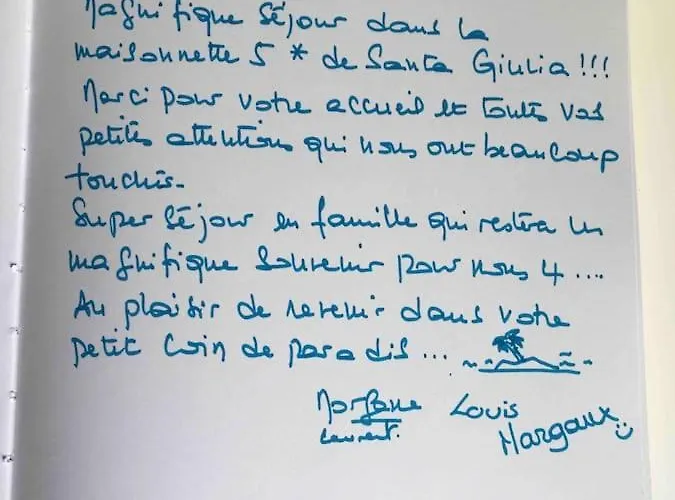 Magnifique séjour dans la
maisonnette 5 * de Santa Giulia !!!
Merci pour votre accueil et toutes vos
petites attentions qui nous ont beaucoup
touchés.
Super séjour en famille qui restera un
magnifique souvenir pour nous 4 ....
Au plaisir de revenir dans votre
petit coin de paradis ...
Morgane Louis
Laurent. Margaux